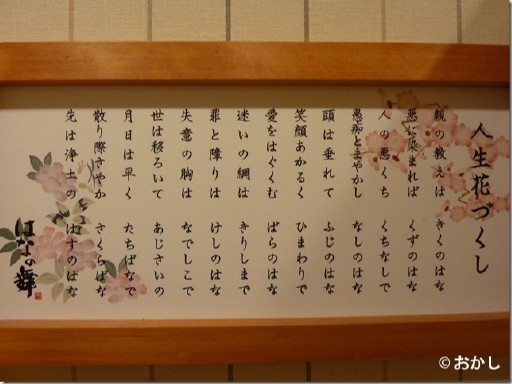 人生花づくし
親の教えは　きくのはな
悪に染まれば　くずのはな
人の悪くち　くちなしで
愚痴とまやかし　なしのはな
頭は垂れて　ふじのはな
笑顔あかるく　ひまわりで
愛をはぐくむ　ばらのはな
迷いの綱は　きりしまで
罪と障りは　けしのはな
失意の胸は　なでしこで
世は移ろいて　あじさいの
月日は早く　たちばなで
散り際さやか　さくらばな
先は浄土の　はすのはな
はなの舞
© おかし